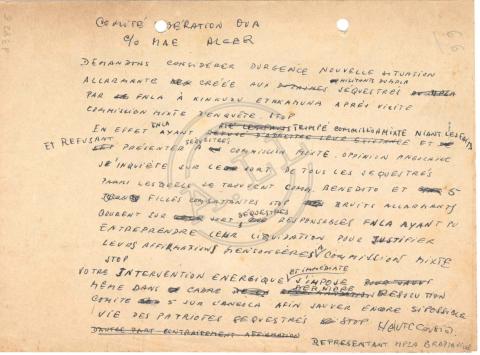 COMITÉ LIBERATION OUA
C/O MAE ALGER
DEMANDONS CONSIDÉRER D'URGENCE NOUVELLE SITUATION
ALLARMANTE CRÉÉE AUX MILITANTS DU MPLA SÉQUESTRÉS
PAR FNLA À KINKUZU ET KAMUNA APRÈS VISITE
COMMISSION MIXTE D'ENQUÊTE STOP
EN EFFET AYANT FNLA TROMPÉ COMMISSION MIXTE NIANT LES FAITS
ET REFUSANT PRÉSENTER SÉQUESTRÉS À COMMISSION MIXTE. OPINION ANGOLAISE
S'INQUIÈTE SUR LE SORT DE TOUS LES SÉQUESTRÉS
PARMI LESQUELS SE TROUVENT COMM. BENEDITO ET 5
FILLES COMBATTANTES STOP BRUITS ALLARMANTS
COURENT SUR SORT SÉQUESTRÉS RESPONSABLES FNLA AYANT PU
ENTREPRENDRE LEUR LIQUIDATION POUR JUSTIFIER
LEURS AFFIRMATIONS MENSONGÈRES À COMMISSION MIXTE
STOP
VOTRE INTERVENTION ENERGIQUE ET IMMÉDIATE S'IMPOSE
MÊME DANS CADRE DERNIÈRE RÉSOLUTION
COMITÉ 5 SUR L'ANGOLA AFIN SAUVER SI POSSIBLE
VIE DES PATRIOTES SÉQUESTRÉS STOP
REPRESENTANT MPLA BRAZZAVILLE